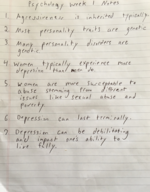 Psychology Week 1 Notes
1. Aggressiveness is inherited typically.
2. Most personality traits are genetic
3. Many personality disorders are
genetic.
4. Women typically experience more
depression than men do.
5. Women are more susceptible to
abuse stemming from different
issues like sexual abuse and
poverty.
6. Depression can last terminally.
7. Depression can be debilitating
and impact one's ability to
live fully.